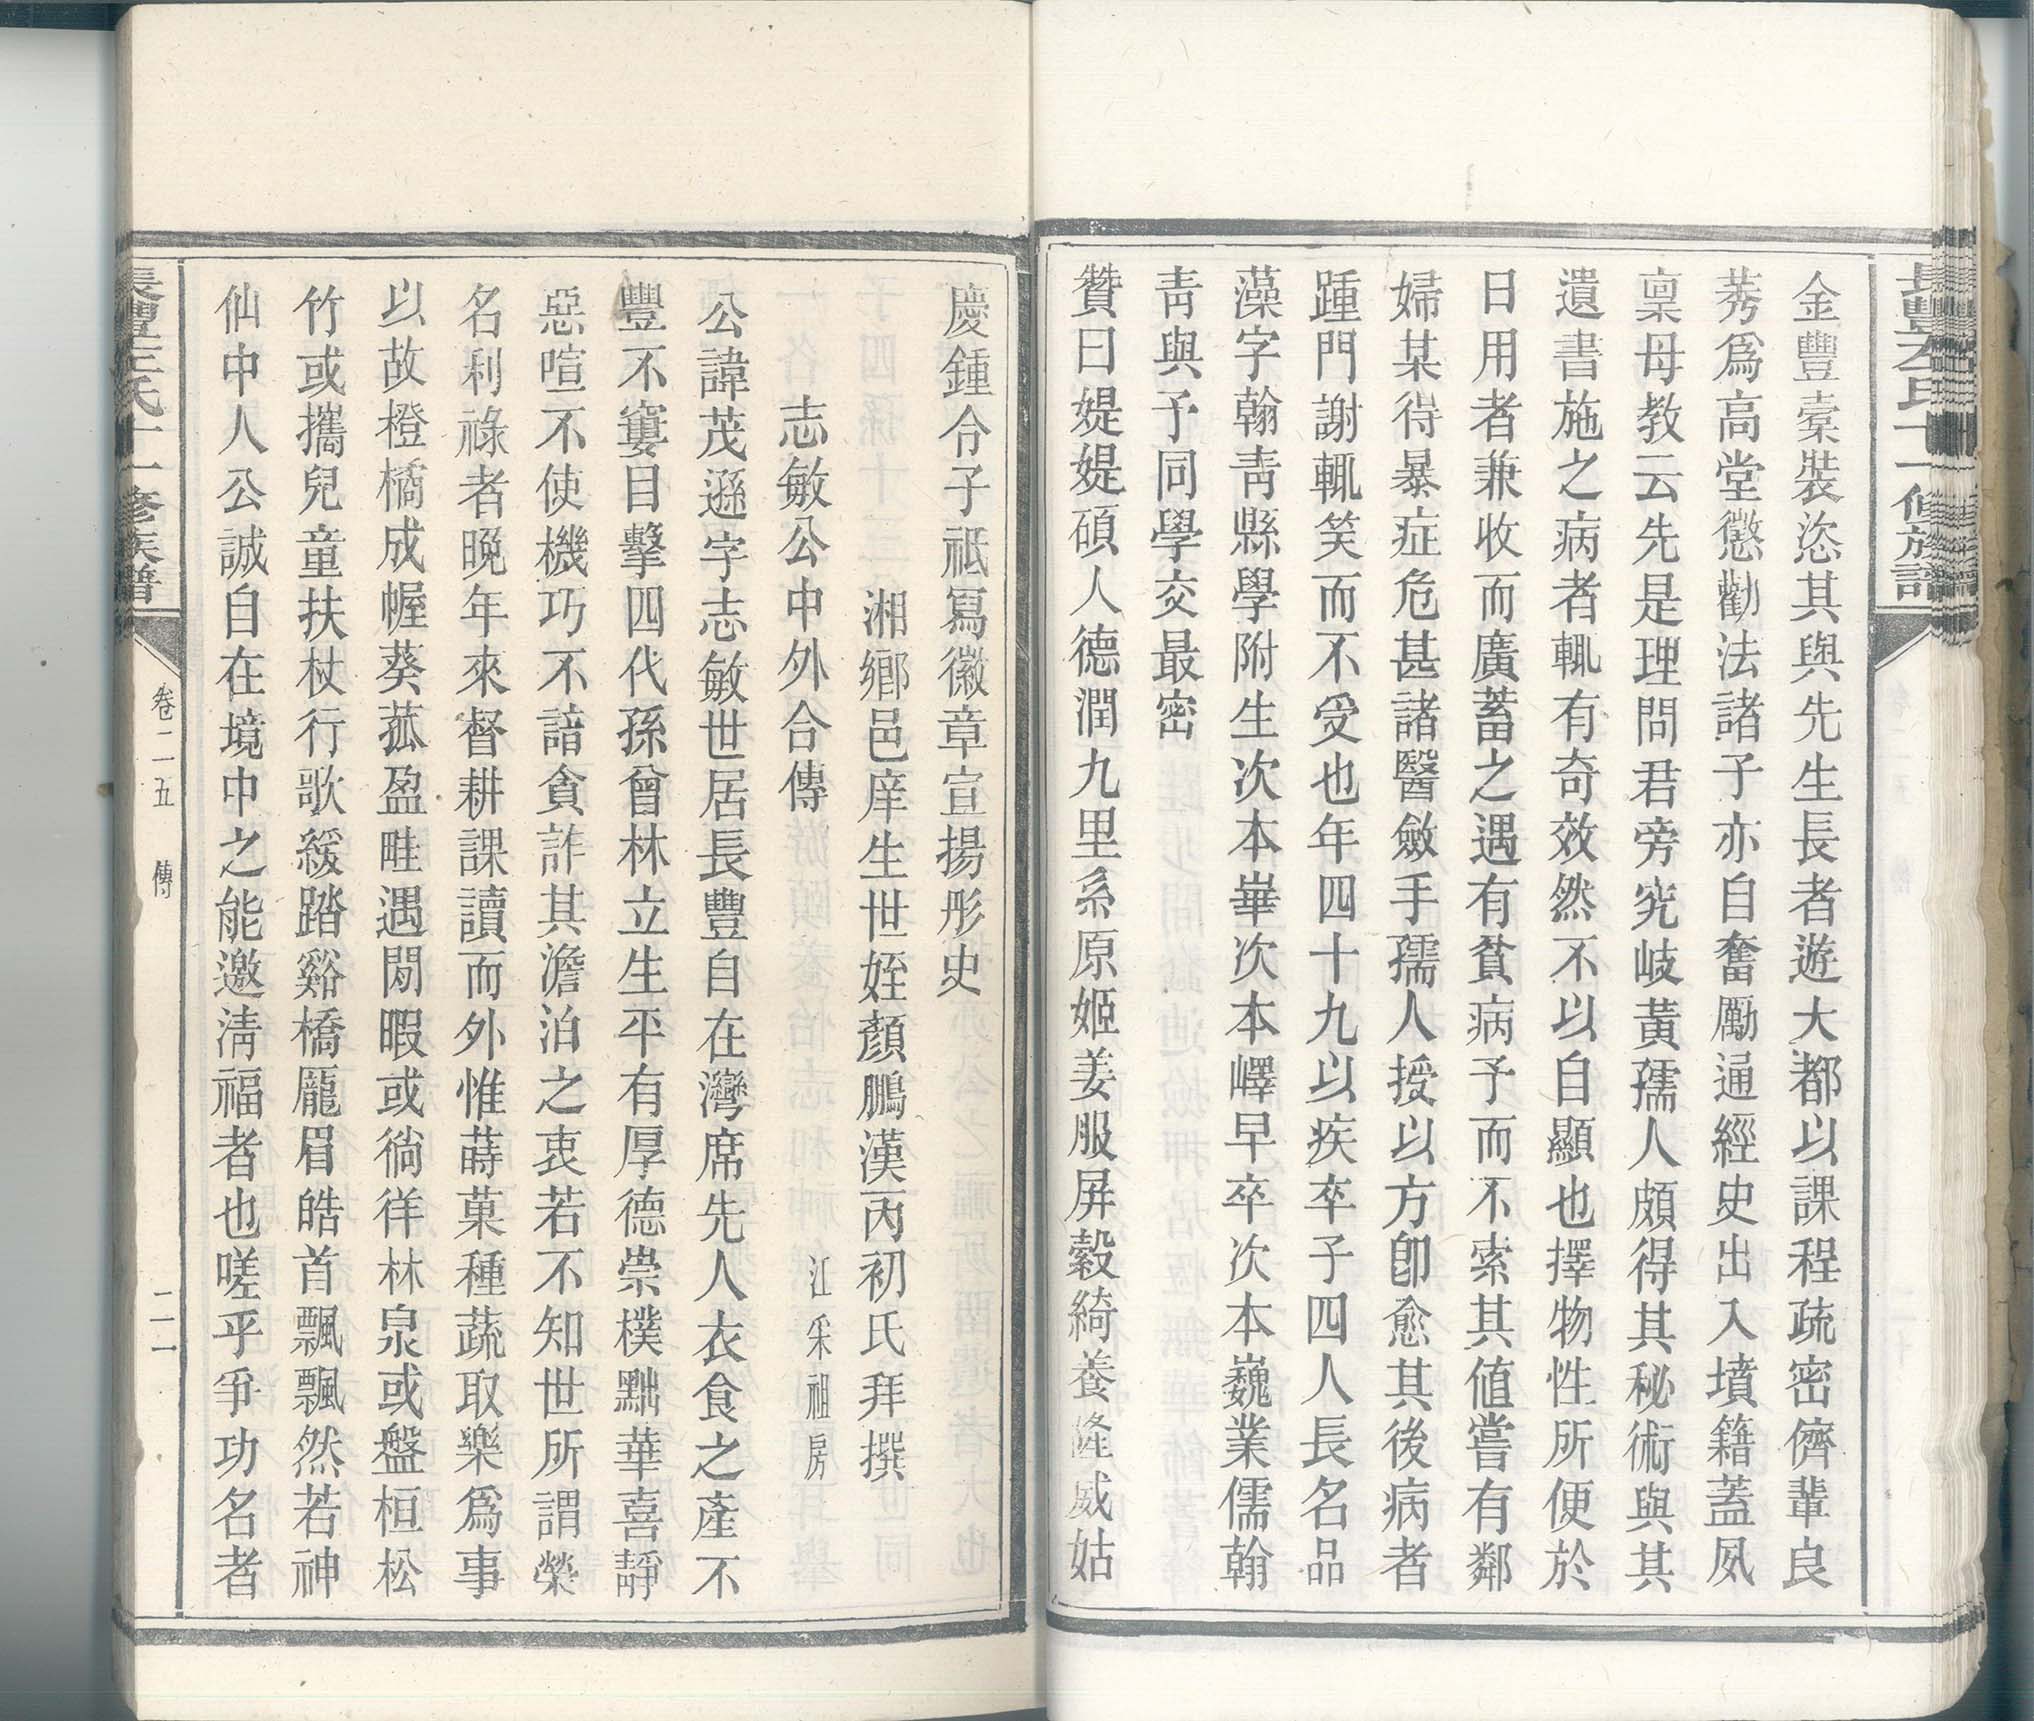 金豐橐裝恣其與先生長者遊大都以課程疏密儕輩良
莠爲高堂懲勸法諸子亦自奮勵通經史出入墳籍蓋夙
稟母教云先是理問君旁究岐黃孺人頗得其秘術與其
遺書施之病者輒有奇效然不以自顯也擇物性所便於
日用者兼收而廣蓄之遇有貧病予而不索其值嘗有鄰
婦某得暴症危甚諸醫斂手孺人授以方卽愈其後病者
踵門謝輒笑而不受也年四十九以疾卒子四人長名品
藻字翰靑縣學附生次本崋次本嶧早卒次本巍業儒翰
靑與予同學交最密
贊曰媞媞碩人德潤九里系原姬姜服屏縠綺養隆威姑
慶鍾令子祇寫徽章宣揚彤史
湘鄉邑庠生世姪顏鵬漢丙初氏拜撰
志敏公中外合傳 江采祖房
公諱茂遜字志敏世居長豐自在灣席先人衣食之產不
豐不窶目擊四代孫曾林立生平有厚德崇樸黜華喜靜
惡喧不使機巧不諳貪詐其澹泊之衷若不知世所謂榮
名利祿者晚年來督耕課讀而外惟蒔菓種蔬取樂爲事
以故橙橘成幄葵菰盈畦遇閒暇或徜徉林泉或盤桓松
竹或攜兒童扶杖行歌緩踏谿橋龐眉皓首飄飄然若神
仙中人公誠自在境中之能邀淸福者也嗟乎爭功名者
卷二五 傳 二一